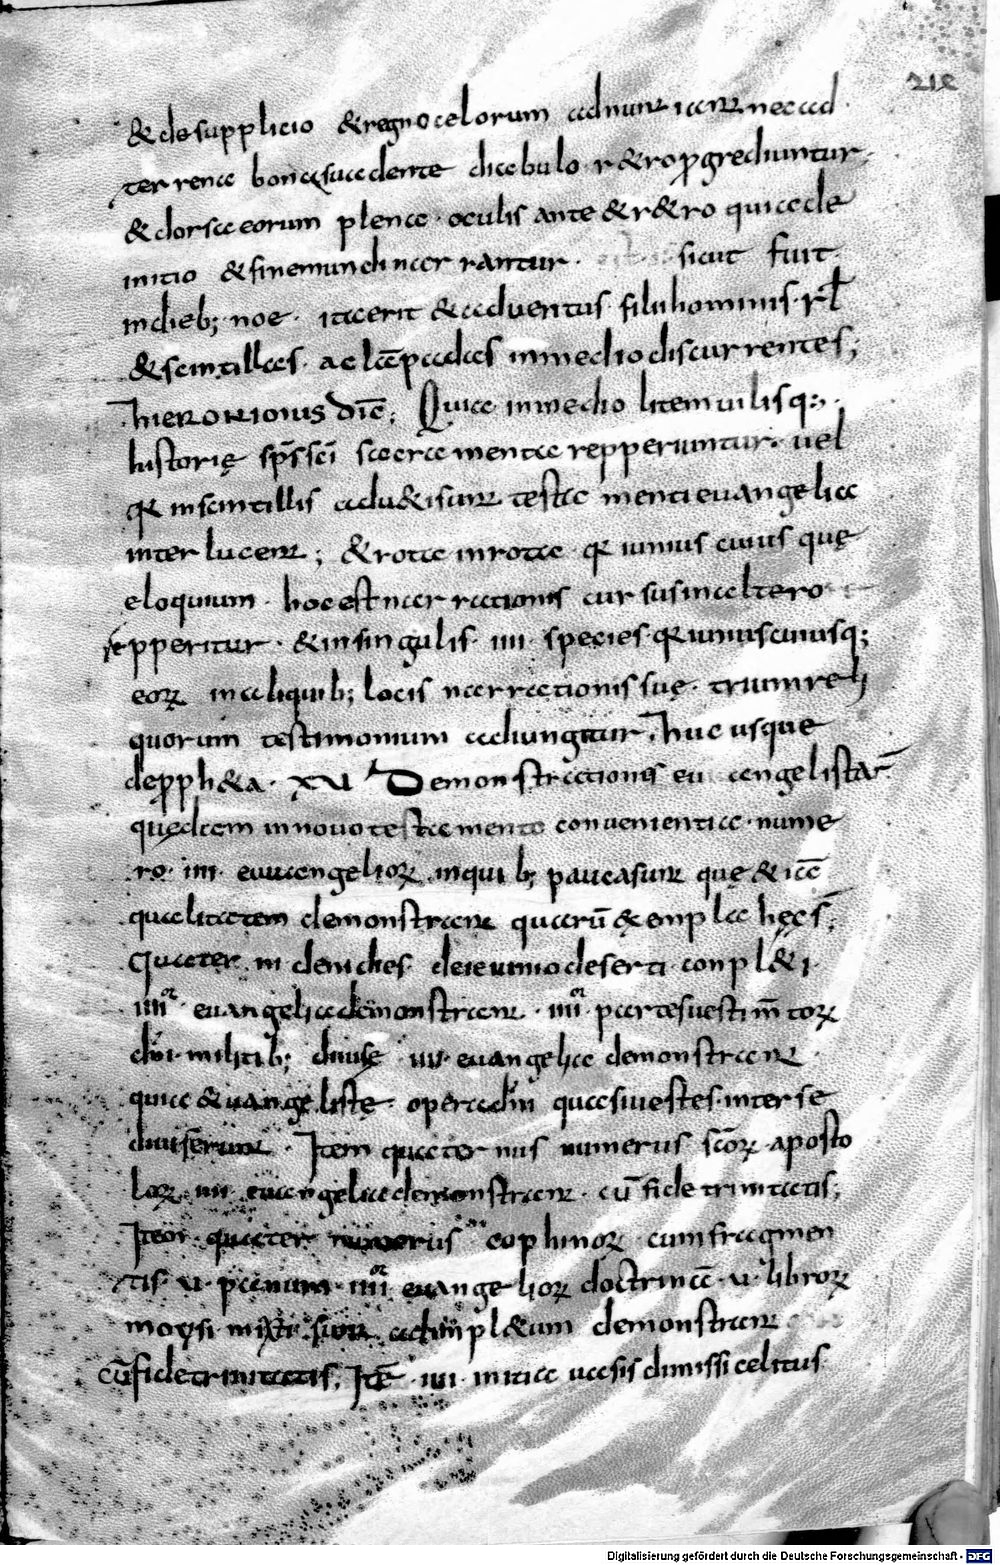 212
& de supplicio & regno celorum adnuntiant nec ad
terrena bona suadente diabulo r&ro p̱grediuntur.
& dorsa eorum plena · oculis ante & r&ro quia de
initio & fine mundi narrantur · sicut fuit
in dieb; noe · ita erit & adventus filii hominis · rł
& scintillas · ac lāpadas in medio discurrentes;
hieronimus dīc; Quia in medio litem vilisq:,
historię sp̄s sc̄i sacramenta repperiuntur. vel
q̄ in scintillis adu&isunt testamenti evangelica
inter lucent; & rota in rota q̄ unius cuius quę
eloquium · hoc est narrationis cursus in altero
repperitur · & in singulis · iiii · species q̄ uniuscuiusq;
eoꝝ in aliquib; locis narrationis suę · trium reli
quorum testimonium adiungitur, huc usque
de p̱ph&a · XV Demonstrationis evangelistaꝝ
quędam in novo testamento convenientia · nume
ro · iiii · evangelioꝝ in quib; pauca sunt quę & iā
qualitatem demonstrant quarū exempla hęc s̄;
Quater in deni dies de ieiunio deserti conpl&i
iiiior · evangelia demonstrant · iiiior partes vestim̄toꝝ
dn̄i · militib; divisę · iiii · evangelia demonstrant
quia evangeliste opera dn̄i quasi vestes inter se
diviserunt · Item quaternus numerus sc̄oꝝ aposto
loꝝ · iiii · evangelia demonstrant · cū fide trinitatis;
Item quater numerus cophinoꝝ cum fragmen
tis · v · panum · iiiior evangelioꝝ doctrinā · v · libroꝝ
moysi mixti sunt adimpl&um demonstrant
cū fide trinitatis; Itē · iiii · initia vasis dimissi celitus
Digitalisierung gefördert durch die Deutsche Forschungsgemeinschaft - DFG